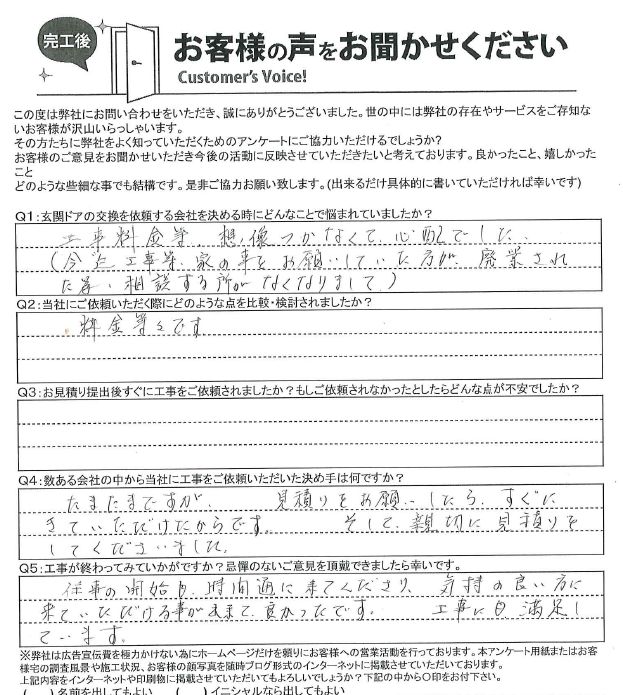 完工後
お客様の声をお聞かせください
Customer's Voice!
この度は弊社にお問い合わせをいただき、誠にありがとうございました。世の中には弊社の存在やサービスをご存知な
いお客様が沢山いらっしゃいます。
その方たちに弊社をよく知っていただくためのアンケートにご協力いただけるでしょうか?
お客様のご意見をお聞かせいただき今後の活動に反映させていただきたいと考えております。良かったこと、嬉しかった
こと
どのような些細な事でも結構です。是非ご協力お願い致します。(出来るだけ具体的に書いていただければ幸いです)
Q1:玄関ドアの交換を依頼する会社を決める時にどんなことで悩まれていましたか?
工事料金等、想像つかなくて、心配でした、
(今迄工事等、家の事をお願いしていた方が、廃業され
た為、相談する所がなくなりまして、)
Q2:当社にご依頼いただく際にどのような点を比較・検討されましたか?
料金等々です
Q3:お見積り提出後すぐに工事をご依頼されましたか?もしご依頼されなかったとしたらどんな点が不安でしたか?
Q4:数ある会社の中から当社に工事をご依頼いただいた決め手は何ですか?
たまたまですが、 見積りをお願いしたら、すぐに
きていただけたからです。 そして、親切に見積りを
してくださいました。
Q5:工事が終わってみていかがですか?忌憚のないご意見を頂戴できましたら幸いです。
仕事の開始も、時間通に来てくださり、 気持の良い方に
来ていただける事ができて、良かったです。 工事にも満足し
ています。
※弊社は広告宣伝費を極力かけない為にホームページだけを頼りにお客様への営業活動を行っております。本アンケート用紙またはお客
様宅の調査風景や施工状況、お客様の顔写真を随時ブログ形式のインターネットに掲載させていただいております。
上記内容をインターネットや印刷物に掲載させていただいてもよろしいでしょうか?下記の中から〇印をお付下さい。
( )名前を出してもよい ( )イニシャルなら出してもよい